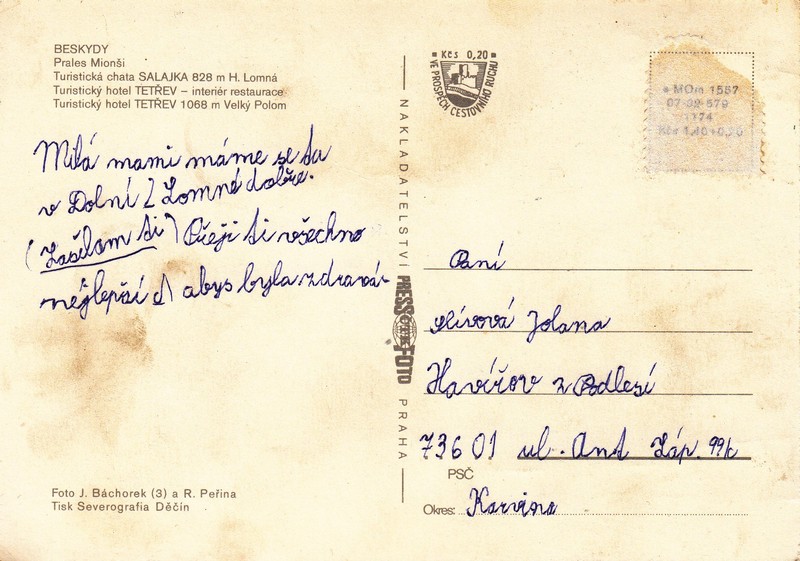 BESKYDY
Prales Mionší
Turistická chata SALAJKA 828 m H. Lomná
Turistický hotel TETŘEV – interiér restaurace
Turistický hotel TETŘEV 1068 m Velký Polom
Milá mami máme se tu
v Dolní Lomné dobře.
(Zasílam ti) Přeji ti všechno
nejlepší a abys byla zdravá.
Foto J. Báchorek (3) a R. Peřina
Tisk Severografia Děčín
NAKLADATELSTVÍ PRESSFOTO PRAHA
Kčs 0,20
VE PROSPĚCH CESTOVNÍHO RUCHU
MOm 1587
07-02-579
1174
Kčs 1,40+0,20
Paní
Slívová Jolana
Havířov z Podlesí
73601 ul. Ant Záp. 99k
PSČ
Okres: Karvina